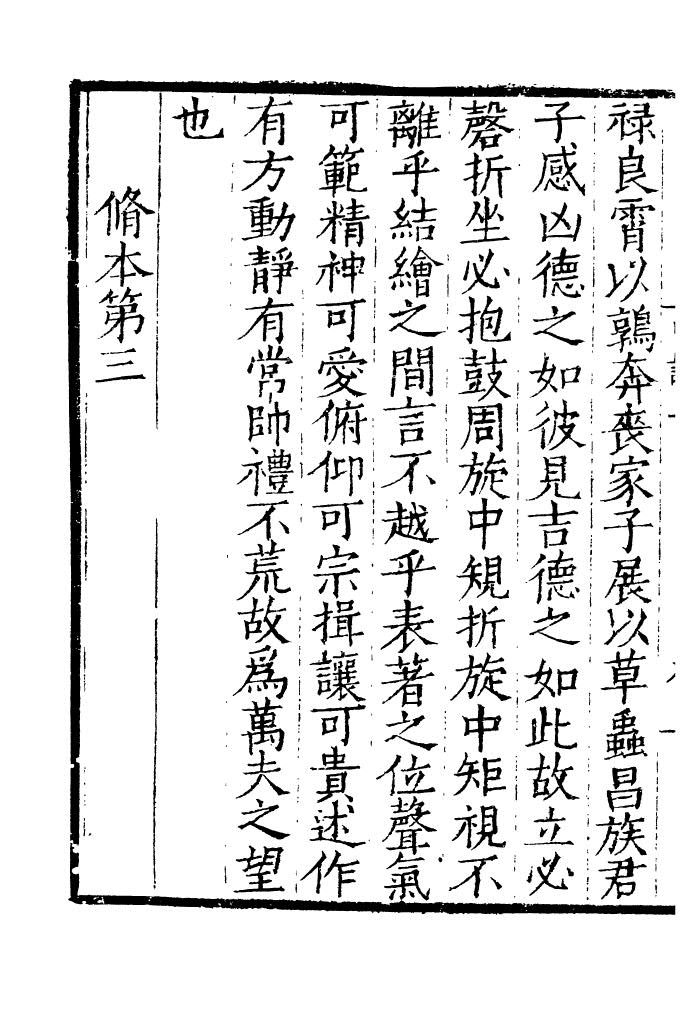 祿良霄以鶉奔喪家子展以草蟲昌族君
子感凶德之如彼見吉德之如此故立必
磬折坐必抱鼓周旋中規折旋中矩視不
離乎結繪之間言不越乎表著之位聲氣
可範精神可愛俯仰可宗揖讓可貴述作
有方動靜有常帥禮不荒故爲萬夫之望
也
脩本第三